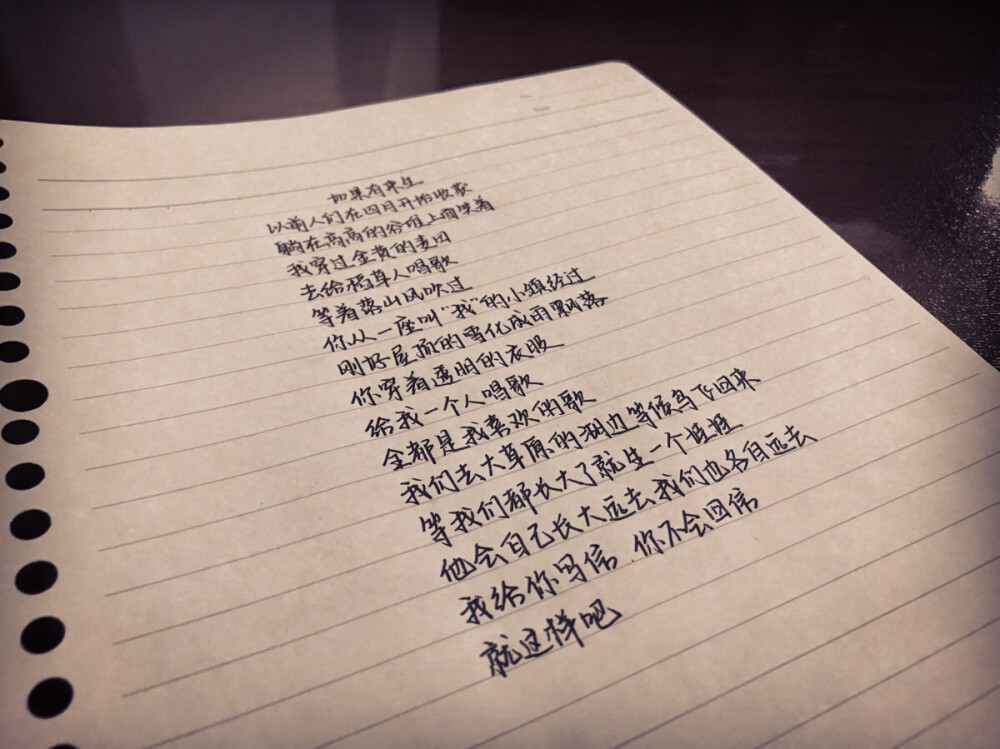 如果有来生
以前人们在四月开始收获
躺在高高的谷堆上面笑着
我穿过金黄的麦田
去给稻草人唱歌
等着落山风吹过
你从一座叫“我”的小镇经过
刚好屋顶的雪化成雨飘落
你穿着透明的衣服
给我一个人唱歌
全都是我喜欢的歌
我们去大草原的湖边等候鸟飞回来
等我们都长大了就生一个娃娃
他会自己长大远去我们也各自远去
我给你写信 你不会回信
就这样吧